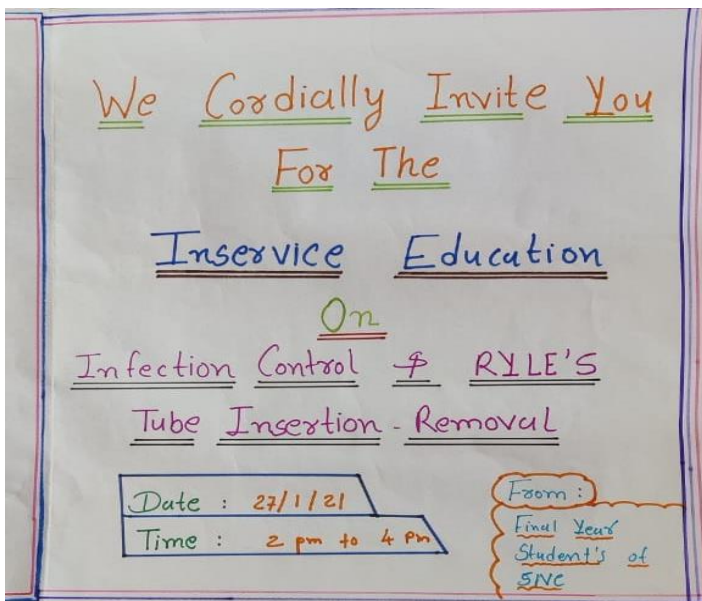 We Cordially Invite You
For The
Inservice Education
On
Infection Control & RYLE'S
Tube Insertion - Removal
Date : 27/1/21
Time : 2 pm to 4 pm
From :
Final Year
Student's of
SNC